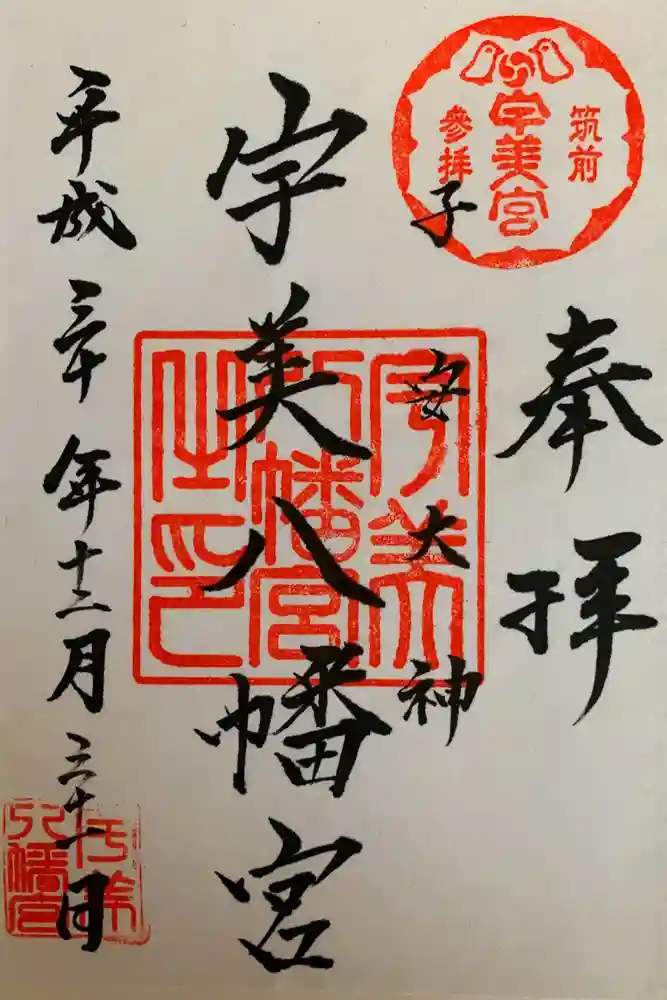 奉拝
筑前
宇美宮
參拝
子安大神
宇美八幡宮
宇美
八幡宮
之印
平成三十年十二月三十一日
宇美
八幡宮